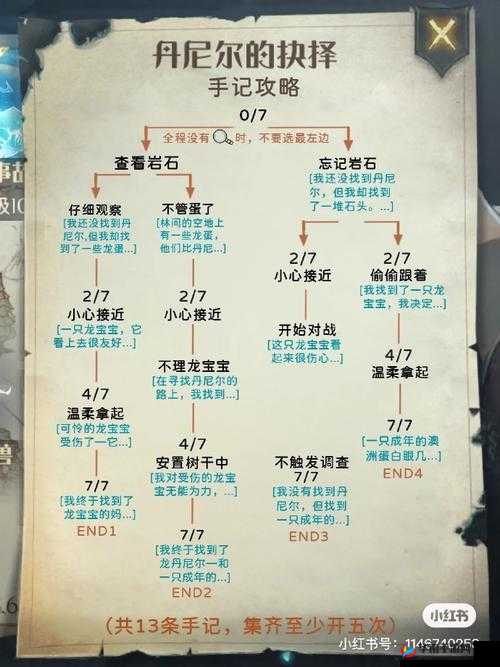 丹尼尔的抉择
手记攻略
0/7
全程没有 时，不要选最左边
查看岩石
忘记岩石
[我还没找到丹尼
尔，但我却找到
了一堆石头。...]
仔细观察
[我还没找到丹
尼尔,但我却找
到了一些龙蛋...]
不管蛋了
[林间的空地上
有一些龙蛋，
他们比丹尼...]
2/7
小心接近
[一只龙宝宝，它
看上去很友好...]
2/7
小心接近
2/7
小心接近
2/7
偷偷跟着
[我找到了一只龙
宝宝，我决定...]
不理龙宝宝
[在寻找丹尼尔的
路上，我找到...]
开始对战
[这只龙宝宝看
起来很伤心...]
4/7
温柔拿起
[可怜的龙宝宝
受伤了一它...]
4/7
安置树干中
[我对受伤的龙宝
宝无能为力，...]
4/7
温柔拿起
7/7
[一只成年的澳
洲蛋白眼几...]
END4
7/7
[我终于找到了
龙宝宝的妈...]
END1
不触发调查
7/7
[我没有找到丹
尼尔，但找到
一只成年的...]
END3
7/7
[我终于找到了
龙丹尼尔一和
一只成年的...]
END2
(共13条手记，集齐至少开五次)
小红书
小红书号：1146740259